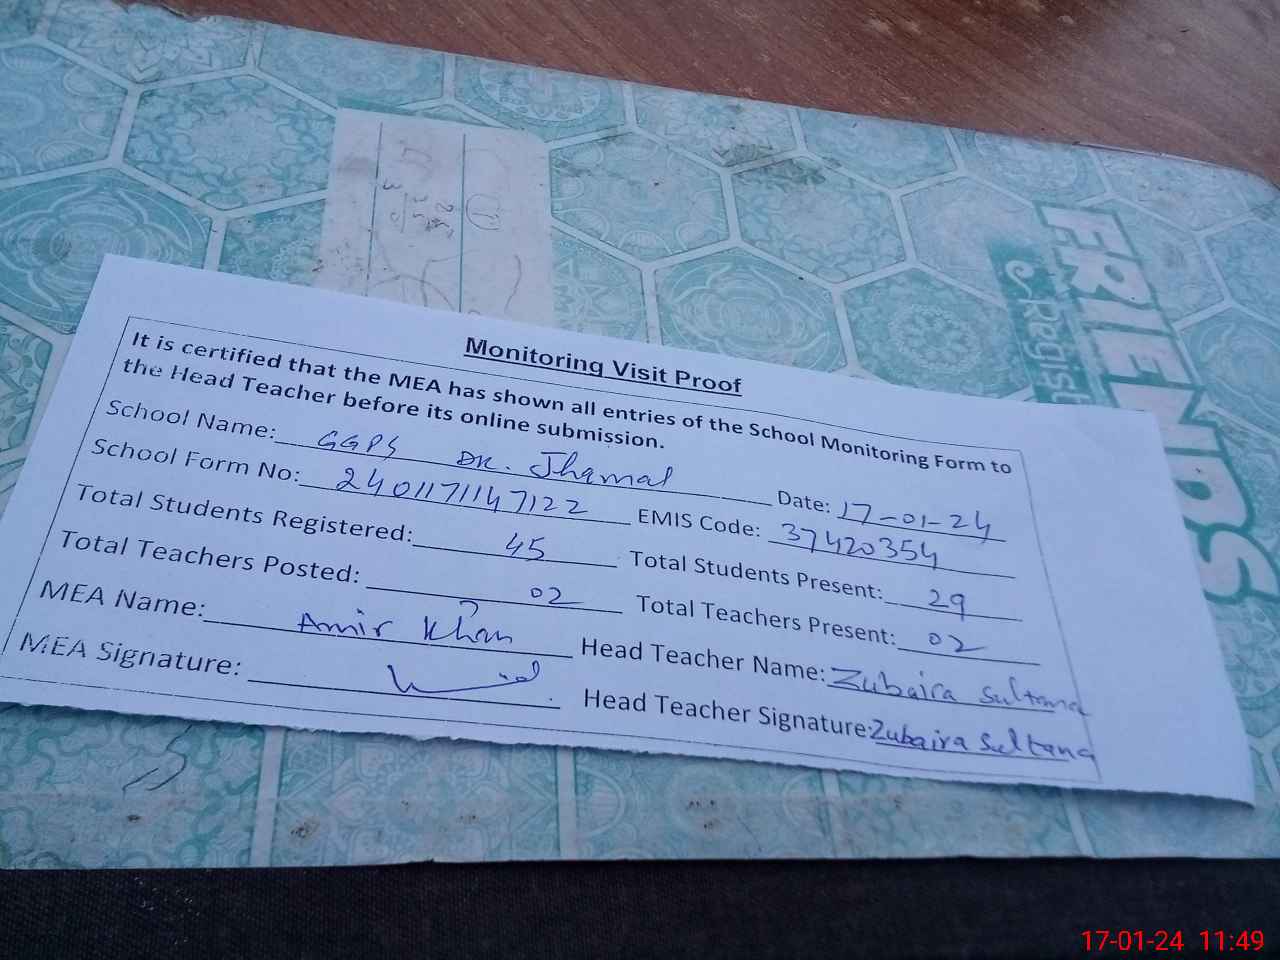 FRIENDS
Regist
Monitoring Visit Proof
It is certified that the MEA has shown all entries of the School Monitoring Form to
the Head Teacher before its online submission.
School Name: GGPS DK. Jhamal Date: 17-01-24
School Form No: 2401171147122 EMIS Code: 37420354
Total Students Registered: 45 Total Students Present: 29
Total Teachers Posted: 02 Total Teachers Present: 02
MEA Name: Amir Khan Head Teacher Name: Zubaira Sultana
MEA Signature: Head Teacher Signature: Zubaira Sultana
17-01-24 11:49